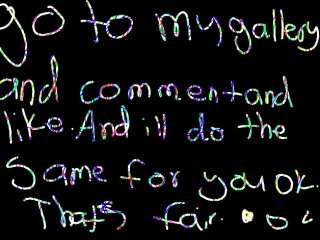 go to my gallery
and comment and
like. And ill do the
same for you ok.
That's fair. . o